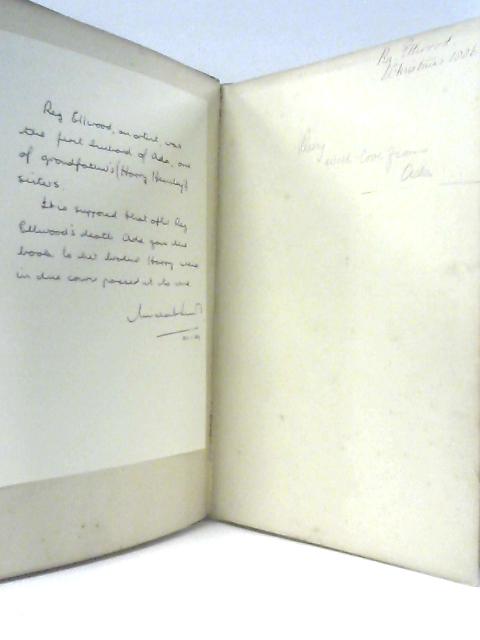 Reg Ellwood, an artist, was
the first husband of Ada, one
of grandfather's (Harry
sisters.
It is supposed that after Reg
Ellwood's death Ada gave the
book to her brother Harry who
in due course passed it to me.
Reg Ellwood.
Christmas
with love from
Ada